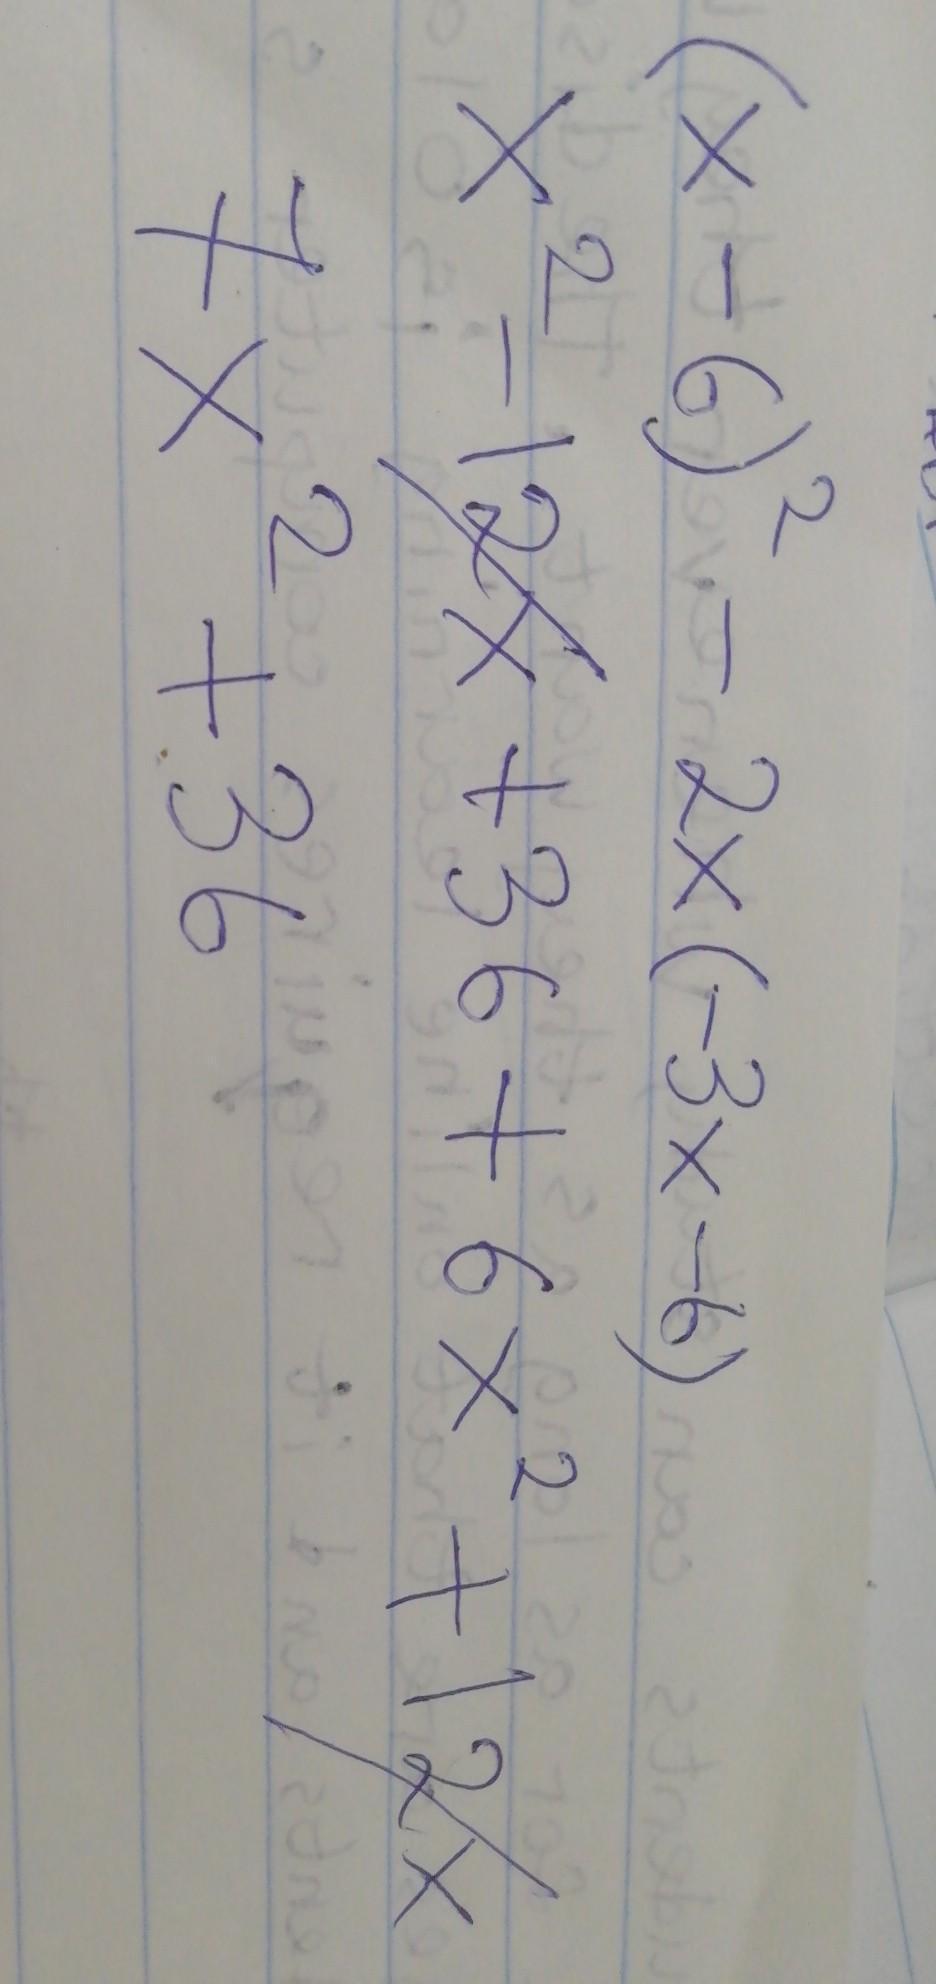 (x - 6)² - 2x(-3x - 6)
x² - 12x + 36 + 6x² + 12x
7x² + 36